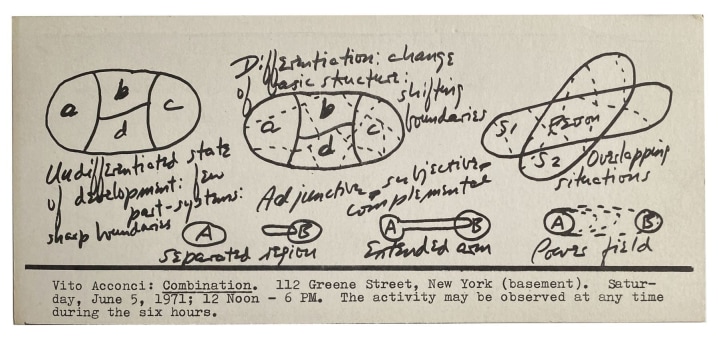 a b c d
Undifferentiated state
of development: few
past-systems:
sharp boundaries
Differentiation: change
of basic structure:
shifting
boundaries
a b c d
S1 Person S2
Overlapping
situations
Adjunctive, subjective,
complemental
A B
Separated region
A B
Extended arm
A B
Power field
Vito Acconci: Combination. 112 Greene Street, New York (basement). Satur-
day, June 5, 1971; 12 Noon - 6 PM. The activity may be observed at any time
during the six hours.